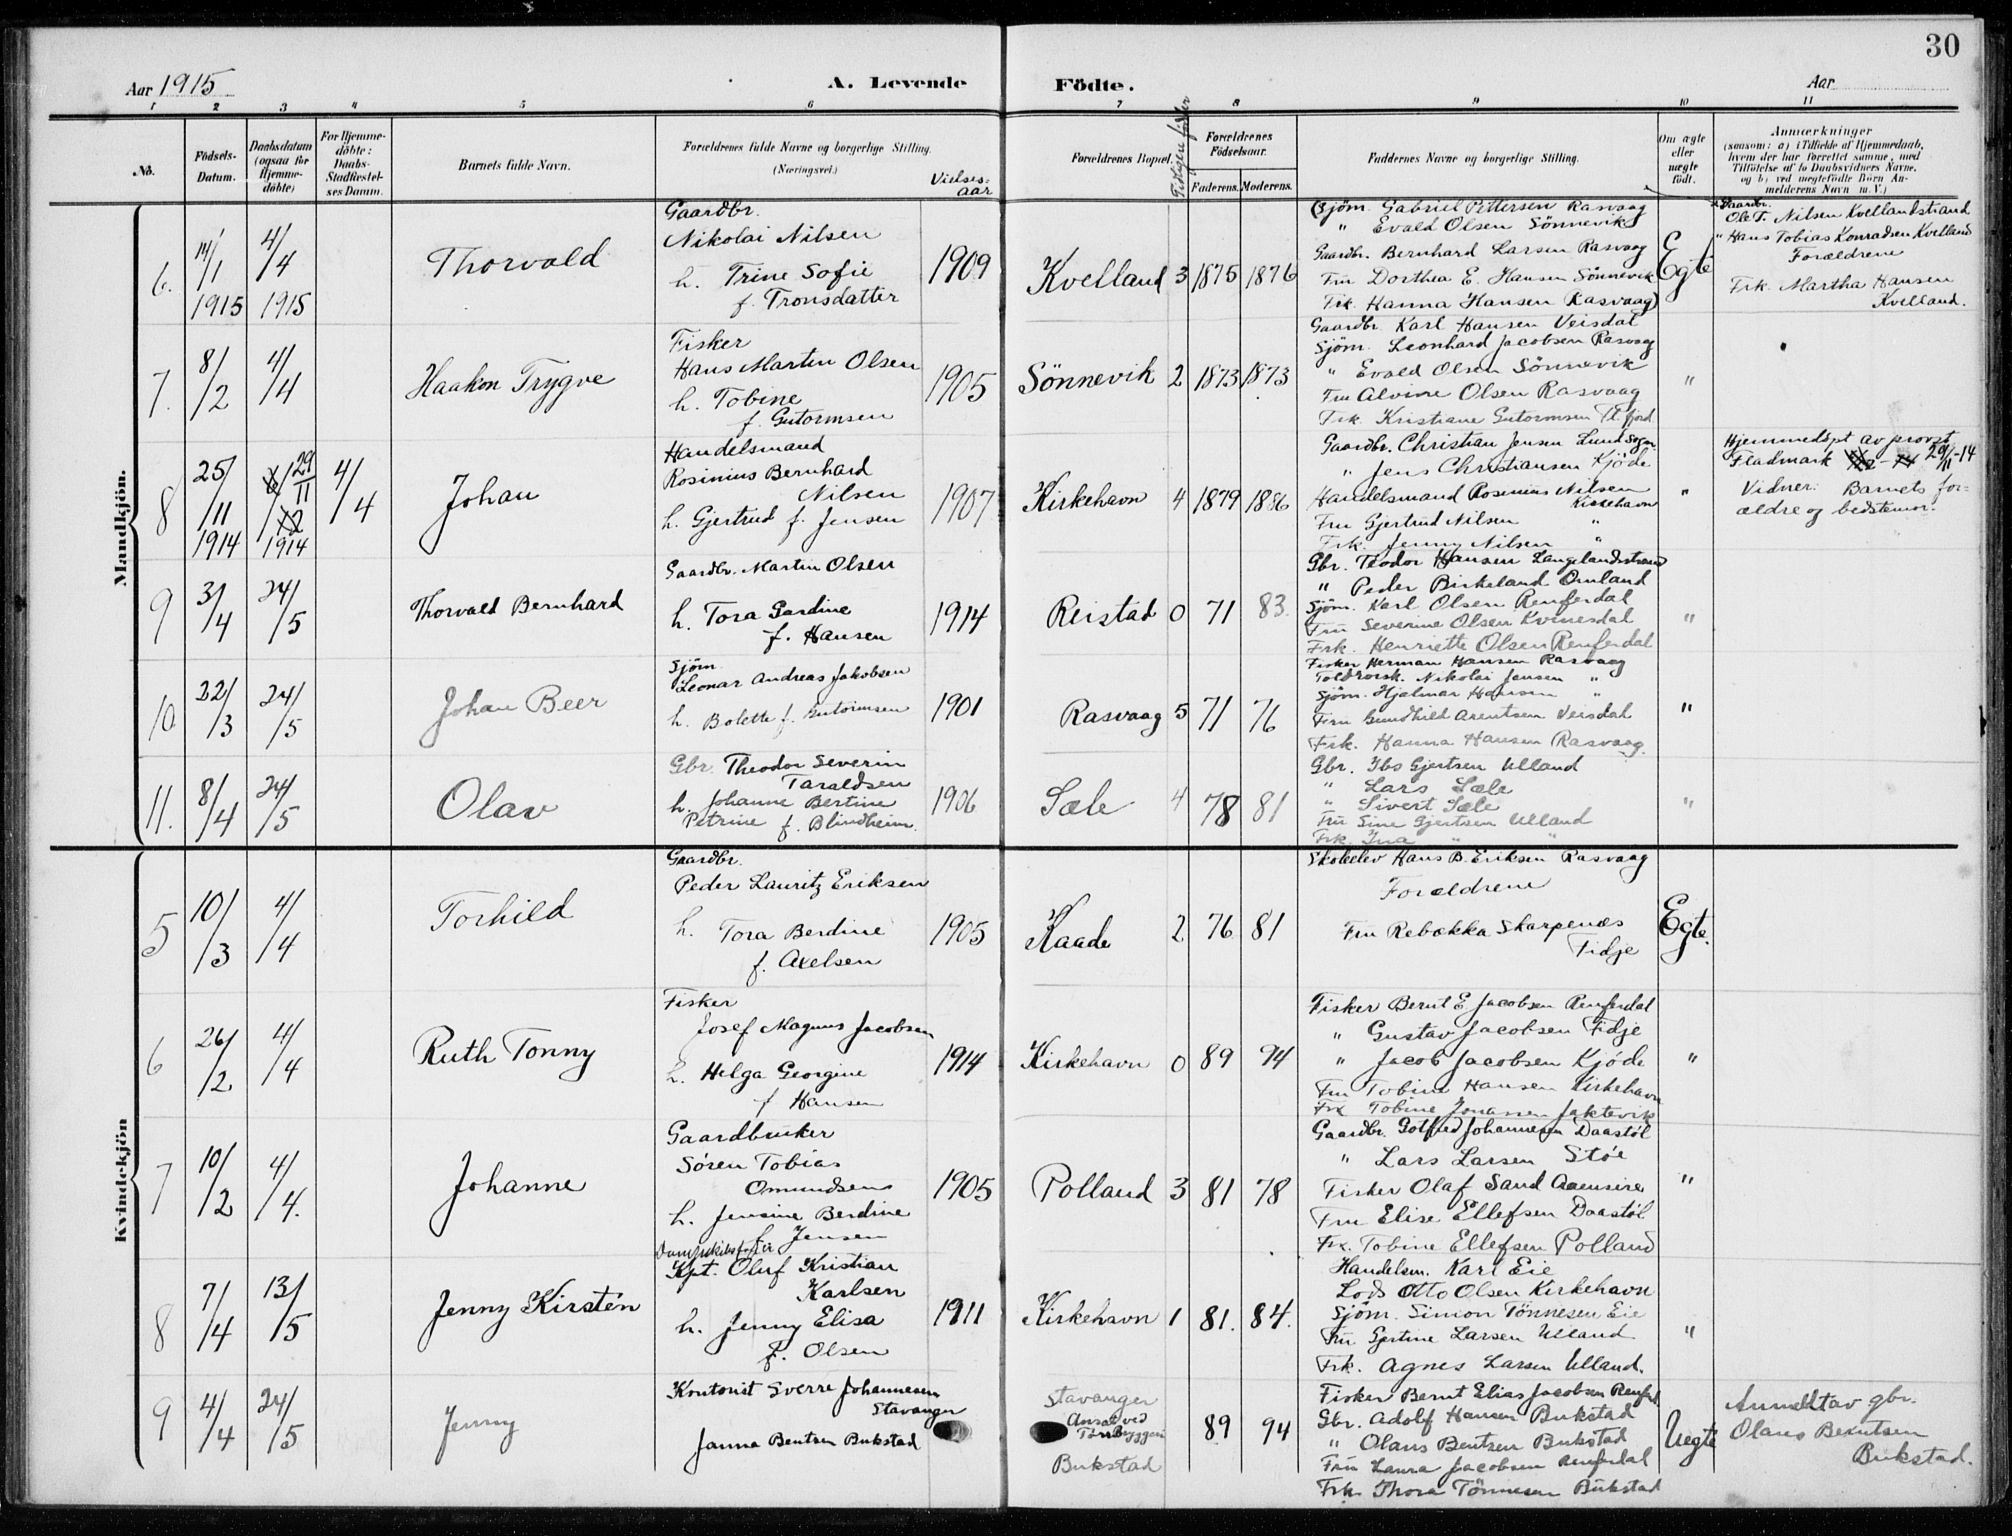 30
Aar 1915
A. Levende
Födte.
Aar
1 2 3 4 5 6 7 8 9 10 11
No.
Födsels-
Datum.
Daabsdatum
(ogsaa for
Hjemme-
döbte)
For Hjemme-
döbte:
Daabs-
Stadfæstel-
ses Datum.
Barnets fulde Navn.
Forældrenes fulde Navne og borgerlige Stilling.
(Næringsvei.)
Vielses-
aar
Forældrenes Bopæl.
Tidligere födsler
Forældrenes
Födselsaar.
Faderens. Moderens.
Faddernes Navne og borgerlige Stilling.
Om ægte
eller
uægte
födt.
Anmærkninger
(saasom: a) i Tilfælde af Hjemmedaab,
hvem der har forrettet samme, med
Tilföielse af to Daabsvidners Navne,
og b) ved uægtefödte Börn An-
melderens Navn m. V.)
Mandkjön.
6.
14/1
1915
4/4
1915
Thorvald
Gaardbr.
Nikolai Nilsen
h. Trine Sofie
f. Tronsdatter
1909
Kvelland 3 1875 1876
(Sjöm. Gabriel Pettersen Rasvaag
" Evald Olsen Sönnevik
Gaardbr. Bernhard Larsen Rasvaag
Fru Dorthea E. Hansen Sönnevik
Frk. Hanna Hansen Rasvaag)
Egte
Gaardbr.
Ole T. Nilsen Kvellandstrand
" Hans Tobias Konradsen Kvelland
Forældrene
Frk. Martha Hansen
Kvelland.
7.
8/2
4/4
Haakon Trygve
Fisker
Hans Martin Olsen
h. Tobine
f. Gutormsen
1905
Sönnevik 2 1873 1873
Gaardbr Karl Hansen Veisdal
Sjöm. Leonhard Jacobsen Rasvaag
" Evald Olsen Sönnevik
Fru Alvine Olsen Rasvaag
Frk. Kristiane Gutormsen Fl.fjord
"
8
25/11
1914
29/11
1914
4/4
Johan
Handelsmand
Rosinius Bernhard
Nilsen
h. Gjertrud f. Jensen
1907
Kirkehavn 4 1879 1886
Gaardbr. Christian Jensen Lund Sogn
" Jens Christiansen Kjöde
Handelsmand Rosinius Nilsen
Kirkehavn
Fru Gjertrud Nilsen "
Frk. Jenny Nilsen "
"
Hjemmedöpt av provst
Fladmark 29/11-14
Vidner: Barnets for-
ældre og bedstemor.
9
3/4
24/5
Thorvald Bernhard
Gaardbr. Martin Olsen
h. Tora Gardine
f. Hansen
1914
Reistad 0 71 83.
Gbr. Teodor Hansen Langelandstrand
" Peder Birkeland Omland
Sjöm. Karl Olsen Renferdal
Fru Severine Olsen Kvinesdal
Frk. Henriette Olsen Renferdal
"
10
22/3
24/5
Johan Beer
Sjöm.
Leonar Andreas Jakobsen
h. Bolette f. Gutormsen
1901
Rasvaag 5 71 76
Fisker Herman Hansen Rasvaag
Toldrorsk. Nikolai Jensen "
Sjöm. Hjalmar Hansen "
Fru Gundhild Arentsen Veisdal
Frk. Hanna Hansen Rasvaag.
"
11.
8/4
24/5
Olav
Gbr. Theodor Severin
Taraldsen
h. Johanne Bertine
Petrine f. Blindheim.
1906
Sæle 4 78 81
Gbr. Ibs Gjertsen Ulland
" Lars Sæle
" Sivert Sæle
Fru Sine Gjertsen Ulland
Frk. Ina " "
"
Kvindekjön
5
10/3
4/4
Torhild
Gaardbr.
Peder Lauritz Eriksen
h. Tora Berdine
f. Axelsen
1905
Kaade 2 76 81
Skoleelev Hans B. Eriksen Rasvaag
Forældrene
Fru Rebekka Skarpenæs
Fidje
Egte.
6
26/2
4/4
Ruth Tonny
Fisker
Josef Magnus Jacobsen
h. Helga Georgine
f Hansen
1914
Kirkehavn 0 89 94
Fisker Bernt E Jacobsen Renferdal
" Gustav Jacobsen Fidje
" Jacob Jacobsen Kjöde
Fru Tobine Hansen Kirkehavn
Frk Tobine Jonassen Jaktevik
"
7
10/2
4/4.
Johanne
Gaardbruker
Sören Tobias
Omundsen
h. Jensine Berdine
f Jensen
1905
Polland 3 81 78
Gaardbr. Gotfred Johannesen Daastöl
" Lars Larsen Stöe
Fisker Olaf Sand Aaensire
Fru Elise Ellefsen Daastöl
Frk. Tobine Ellefsen Polland
"
8
7/4
13/5
Jenny Kirsten
Kpt. Oluf Kristian
Karlsen
h. Jenny Elisa
f. Olsen
1911
Kirkehavn 1 81. 84.
Handelsm. Karl Eie
Lods Otto Olsen Kirkehavn
Sjöm. Simon Tönnesen Eie
Fru Gjertine Larsen Ulland
Frk. Agnes Larsen Ulland.
"
9
4/4
24/5
Jenny
Kontorist Sverre Johannesen
Stavanger
Janna Bentsen Bukstad
Stavanger
Ansat ved
Bukstad
89 94
Fisker Bernt Elias Jacobsen Renferd.
Gbr. Adolf Hansen Bukstad
" Olaus Bentsen Bukstad
Fru Laura Jacobsen Renferdal
Frk. Thora Tönnesen Bukstad
Uegte
Anmeldt av gbr.
Olaus Berntsen
Bukstad.